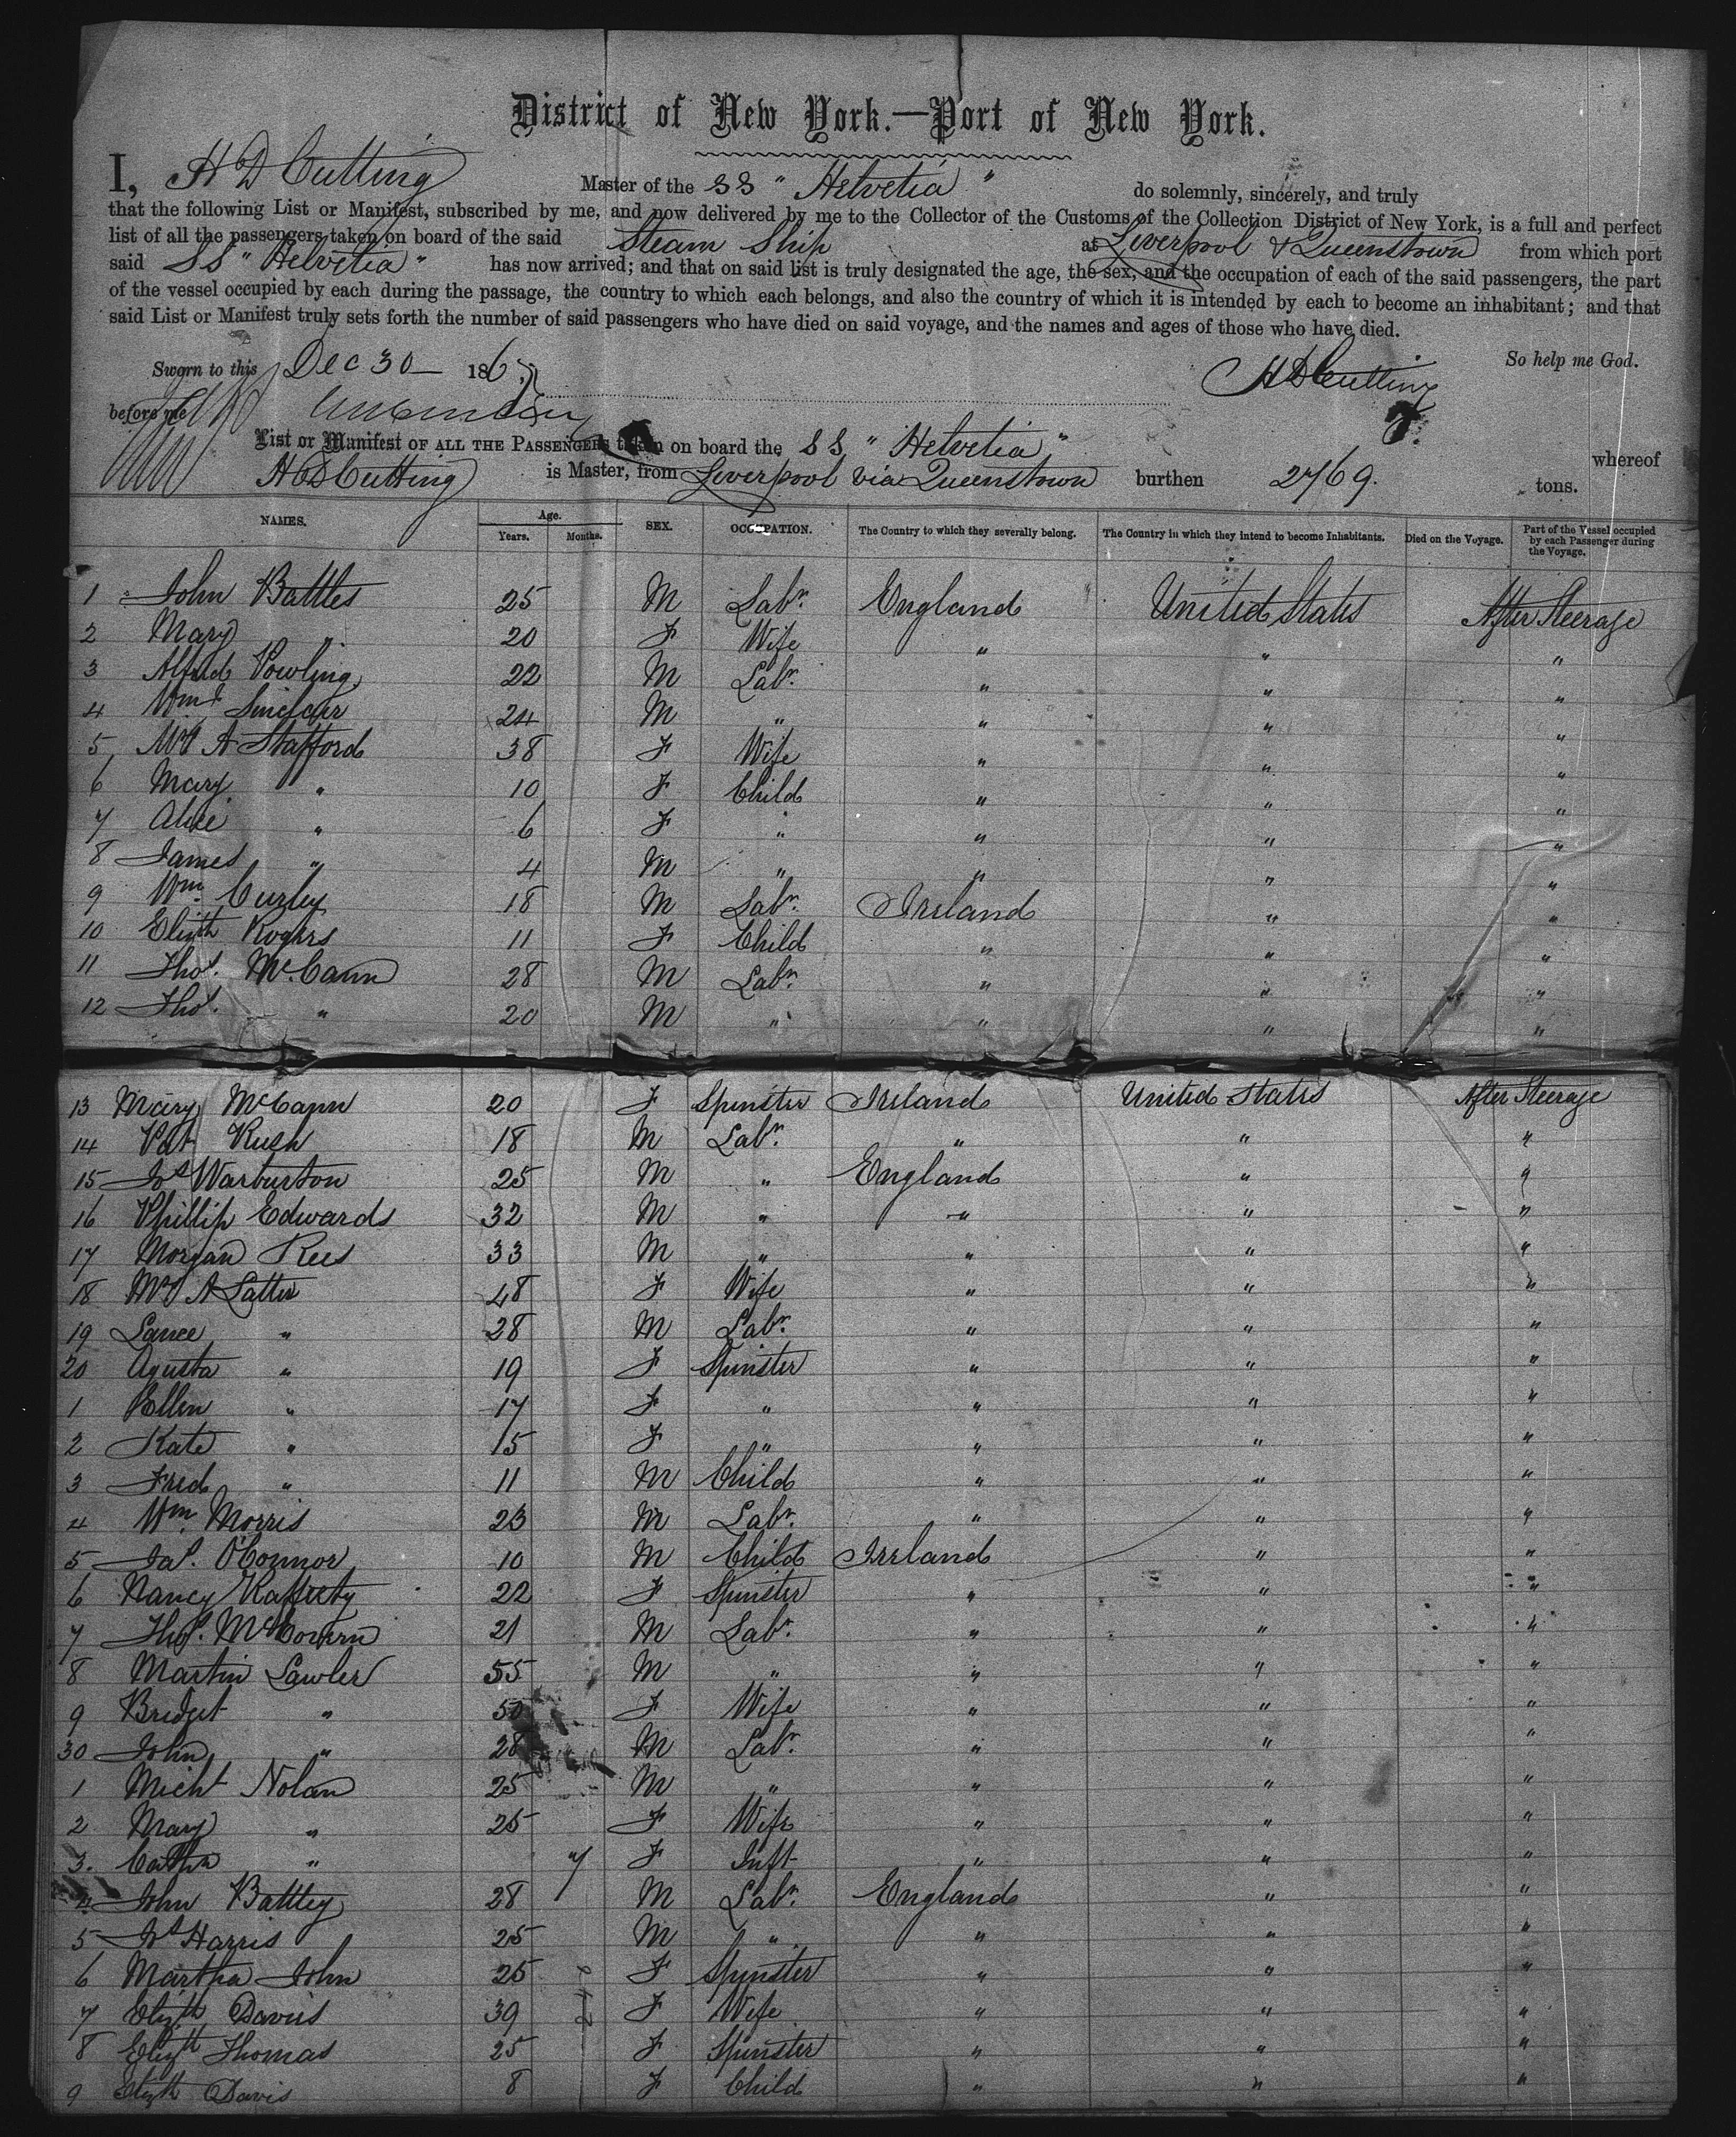 District of New York.—Port of New York.
I, H D Cutting Master of the SS "Helvetia" do solemnly, sincerely, and truly
that the following List or Manifest, subscribed by me, and now delivered by me to the Collector of the Customs of the Collection District of New York, is a full and perfect
list of all the passengers taken on board of the said Steam Ship at Liverpool & Queenstown from which port
said SS "Helvetia" has now arrived; and that on said list is truly designated the age, the sex, and the occupation of each of the said passengers, the part
of the vessel occupied by each during the passage, the country to which each belongs, and also the country of which it is intended by each to become an inhabitant; and that
said List or Manifest truly sets forth the number of said passengers who have died on said voyage, and the names and ages of those who have died.
So help me God.
Sworn to this Dec 30 186 HD Cutting
before me
List or Manifest OF ALL THE PASSENGERS taken on board the SS "Helvetia" whereof
HD Cutting is Master, from Liverpool via Queenstown burthen 2769. tons.
NAMES. Age. Years. Months. SEX. OCCUPATION. The Country to which they severally belong. The Country in which they intend to become Inhabitants. Died on the Voyage. Part of the Vessel occupied by each Passenger during the Voyage.
1 John Battles 25 M Labr. England United States After Steerage
2 Mary " 20 F Wife " " "
3 Alfred Vowling 22 M Labr. " " "
4 Wm Sinclair 24 M " " " "
5 Mrs A Stafford 38 F Wife " " "
6 Mary " 10 F Child " " "
7 Alice " 6 F " " " "
8 James " 4 M " " " "
9 Wm. Curley 18 M Labr. Ireland " "
10 Elizth Rogers 11 F Child " " "
11 Thos. McCann 28 M Labr. " " "
12 Thos. " 20 M " " " "
13 Mary McCann 20 F Spinster Ireland United States After Steerage
14 Pat Rush 18 M Labr. " " "
15 Js Warburton 25 M " England " "
16 Phillip Edwards 32 M " " " "
17 Morgan Rees 33 M " " " "
18 Mrs A Latter 48 F Wife " " "
19 Lance " 28 M Labr. " " "
20 Agusta " 19 F Spinster " " "
1 Ellen " 17 F " " " "
2 Kate " 15 F " " " "
3 Fred " 11 M Child " " "
4 Wm. Morris 23 M Labr. " " "
5 Jas. O'Connor 10 M Child Ireland " "
6 Nancy Rafferty 22 F Spinster " " "
7 Thos. McGovern 21 M Labr. " " "
8 Martin Lawler 55 M " " " "
9 Bridget " 50 F Wife " " "
30 John " 28 M Labr. " " "
1 Michl Nolan 25 M " " " "
2 Mary " 25 F Wife " " "
3. Cathn " 7 F Inft " " "
4 John Battley 28 M Labr. England " "
5 Js Harris 25 M " " " "
6 Martha John 25 F Spinster " " "
7 Elizth Davis 39 F Wife " " "
8 Elizth Thomas 25 F Spinster " " "
9 Elizth Davis 8 F Child " " "